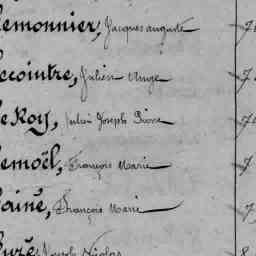 emonnier, Jacques auguste
ecointre, Julien Ange
e Roy, Julien Joseph Pierre
emoël, François Marie
ainé, François Marie
uré, Joseph Nicolas